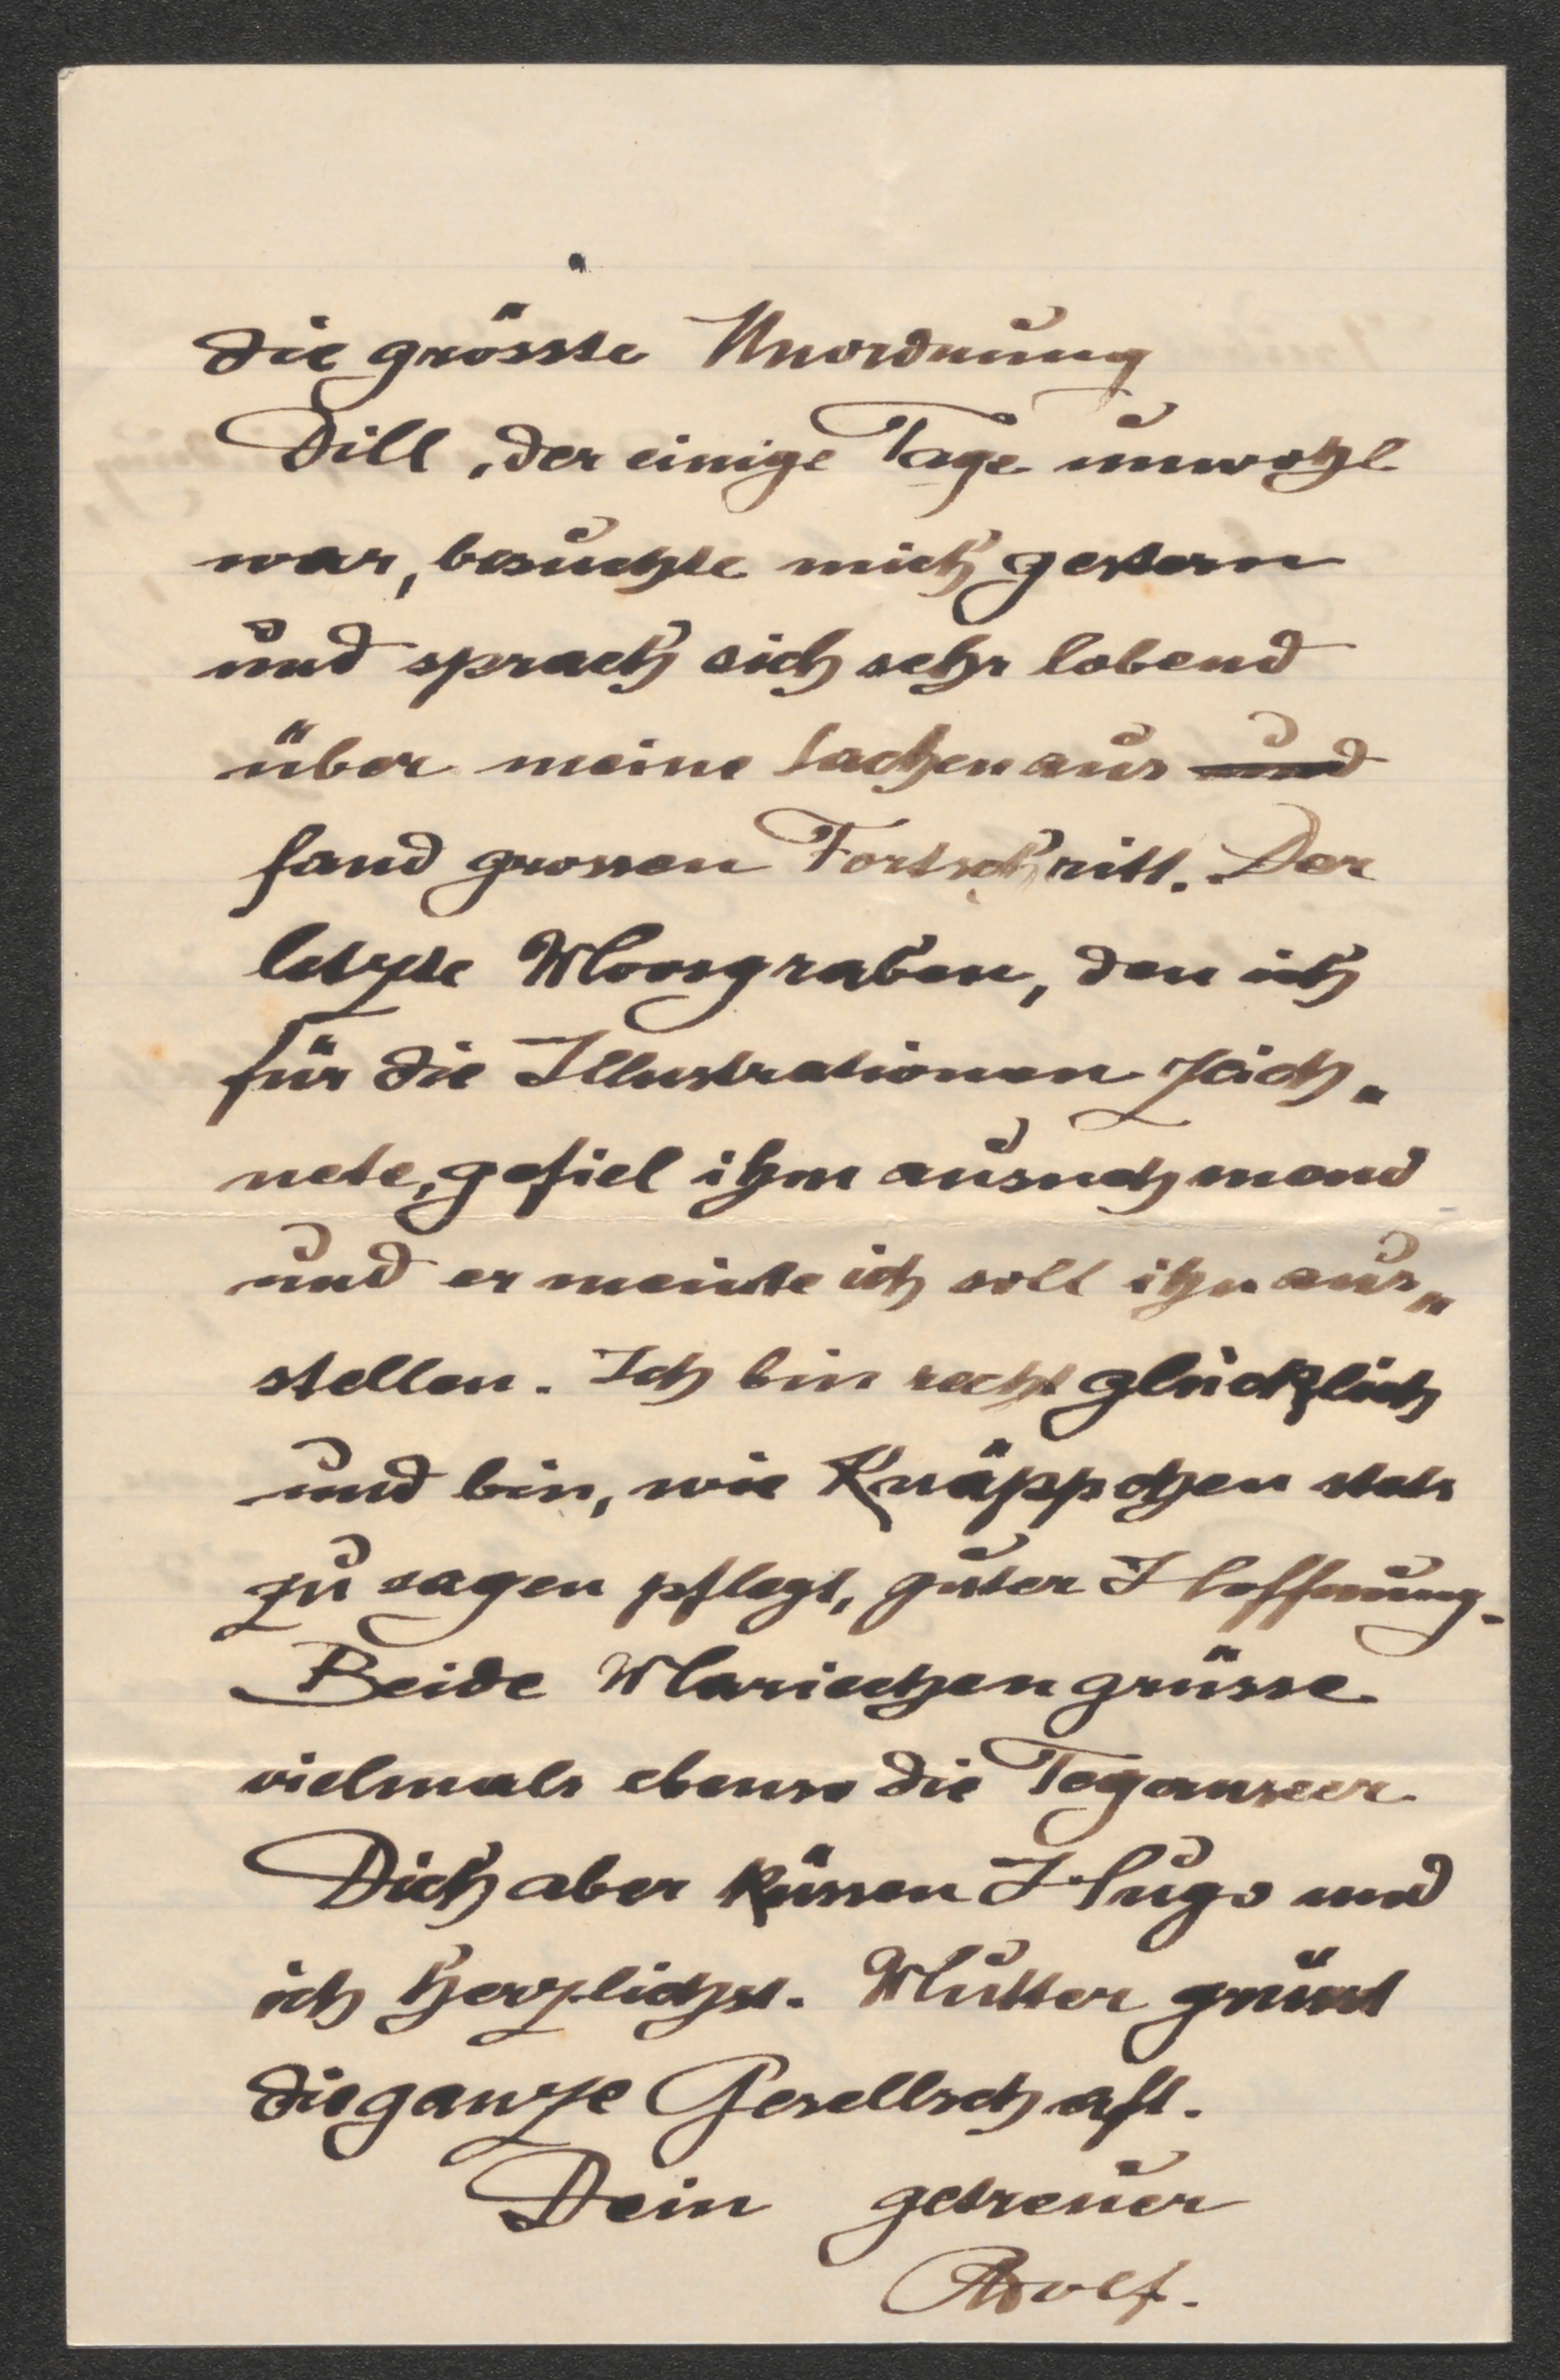 die grösste Unordnung
Dill, der einige Tage unwohl
war, besuchte mich gestern
und sprach sich sehr lobend
über meine Sachen aus und
fand grossen Fortschritt. Der
letzte Moosgraben, den ich
für die Illustrationen zeich„
nete, gefiel ihm ausnehmend
und er meinte ich soll ihn aus„
stellen. Ich bin recht glücklich
und bin, wie Knäppchen stets
zu sagen pflegt, guter Hoffnung.
Beide Mariechen grüsse
vielmals ebenso die Tegernseer
Dich aber küssen Hugo und
ich herzlichst. Mutter grüsst
die ganze Gesellschaft.
Dein getreuer
Adolf.